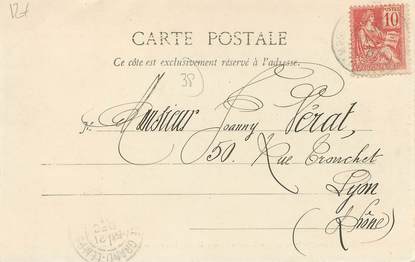 12f
CARTE POSTALE
Ce côté est exclusivement réservé à l'adresse.
38
10
POSTES
Monsieur Joanny Vérat,
50, Rue Tronchet
Lyon
(Rhône)